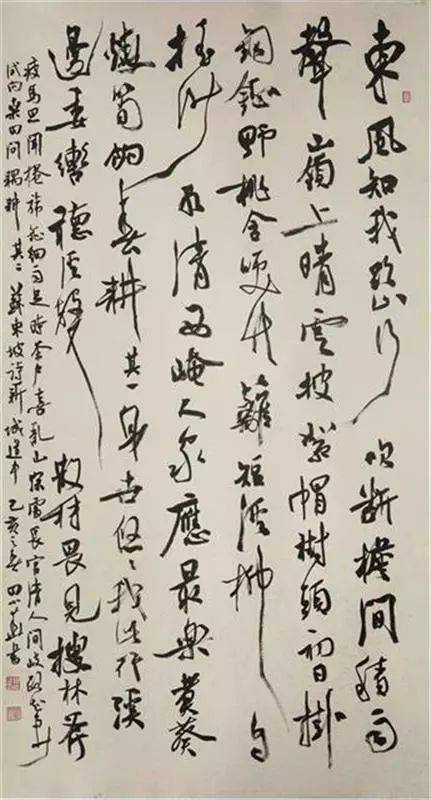 東風知我欲山行吹斷檐間積雨
聲嶺上晴雲披絮帽樹頭初日掛
銅鉦野桃含笑竹籬短溪柳自
搖沙水清西崦人家應最樂煮葵
燒筍餉春耕其一身世悠悠我此行溪
邊委轡聽溪聲散材畏見搜林斧
疲馬思聞捲旆鉦細雨足時茶戶喜亂山深處長官清人間歧路知多少
試向桑田問耦耕其二蘇東坡詩新城道中己亥之春書